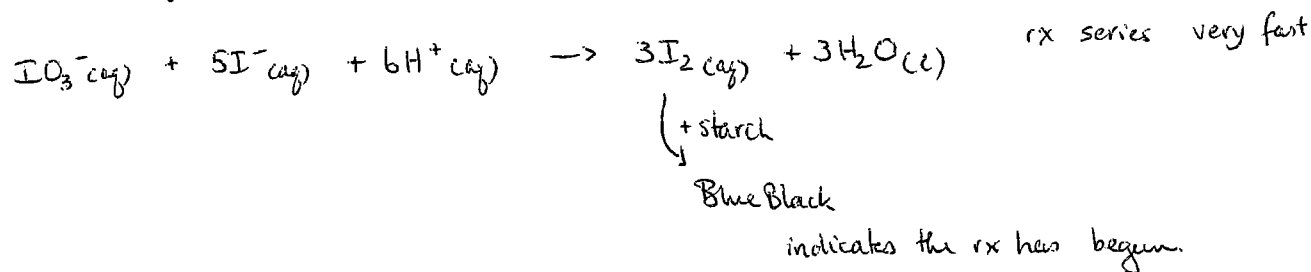 IO₃⁻(aq) + 5I⁻(aq) + 6H⁺(aq) → 3I₂(aq) + 3H₂O(l) rx series very fast
+ starch
Blue Black
indicates the rx has begun.